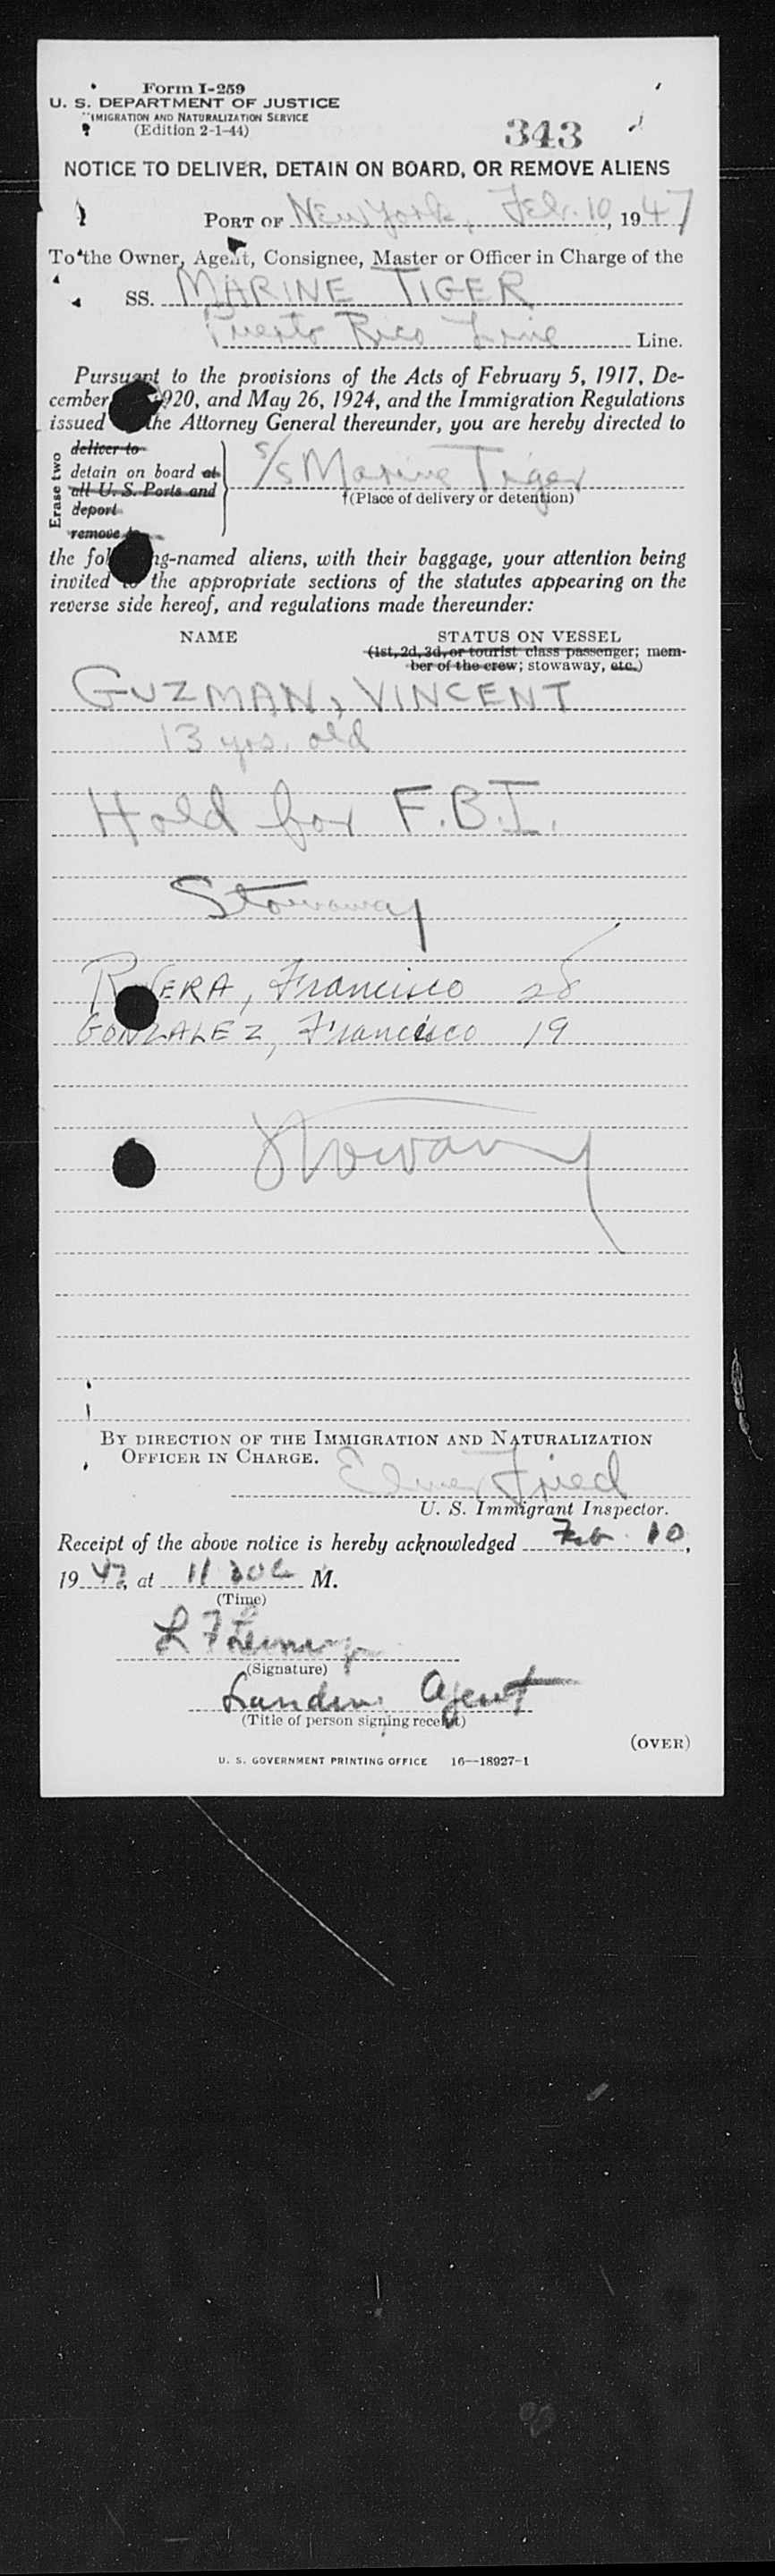 Form I-259
U. S. DEPARTMENT OF JUSTICE
IMIGRATION AND NATURALIZATION SERVICE
(Edition 2-1-44)
343
NOTICE TO DELIVER, DETAIN ON BOARD, OR REMOVE ALIENS
PORT OF New York, Feb. 10, 1947
To the Owner, Agent, Consignee, Master or Officer in Charge of the
SS. MARINE TIGER
Puerto Rico Line Line.
Pursuant to the provisions of the Acts of February 5, 1917, De-
cember 920, and May 26, 1924, and the Immigration Regulations
issued the Attorney General thereunder, you are hereby directed to
Erase two
deliver to
detain on board at
all U. S. Ports and
deport
remove to
S/S Marine Tiger
†(Place of delivery or detention)
the following-named aliens, with their baggage, your attention being
invited to the appropriate sections of the statutes appearing on the
reverse side hereof, and regulations made thereunder:
NAME STATUS ON VESSEL
(1st, 2d, 3d, or tourist class passenger; mem-
ber of the crew; stowaway, etc.)
GUZMAN, VINCENT
13 yrs. old
Hold for F.B.I.
Stowaway
RIVERA, Francisco 28
GONZALEZ, Francisco 19
Stowaway
BY DIRECTION OF THE IMMIGRATION AND NATURALIZATION
OFFICER IN CHARGE.
Elmer Fried
U. S. Immigrant Inspector.
Receipt of the above notice is hereby acknowledged Feb. 10,
1947, at 11 30a M.
(Time)
(Signature)
Landing Agent
(Title of person signing receipt)
(OVER)
U. S. GOVERNMENT PRINTING OFFICE 16—18927-1